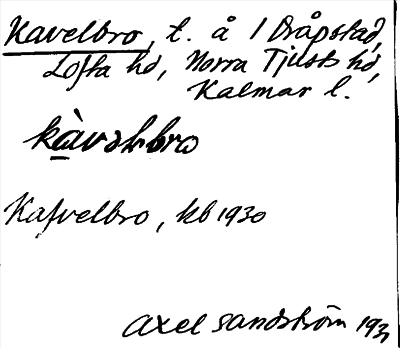 Kavelbro, t. å 1 Dråpstad,
Lofta hd, Norra Tjusts hd,
Kalmar l.
kàvəlbro
Kafvelbro, kb 1930
Axel Sandström 193